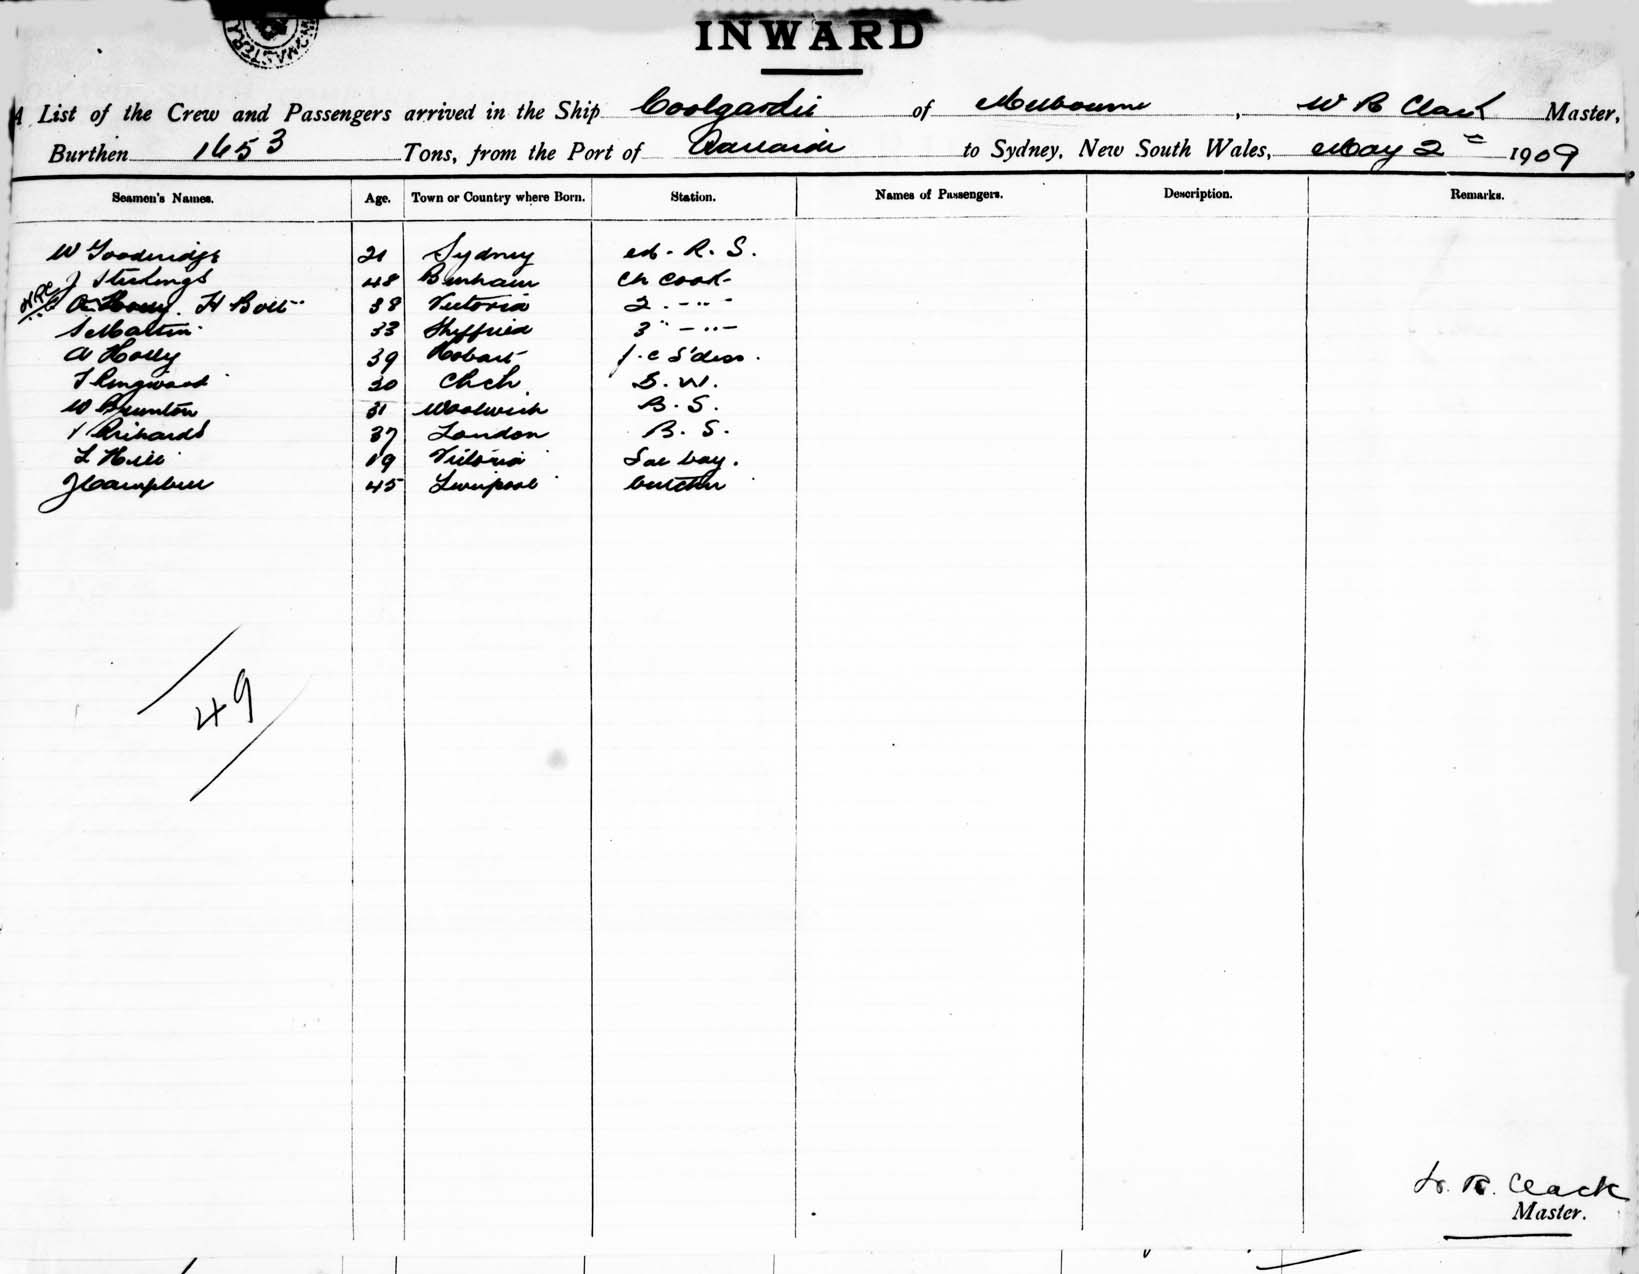 INWARD
A List of the Crew and Passengers arrived in the Ship Coolgardie of Melbourne, W R Clack Master,
Burthen 1653 Tons, from the Port of Adelaide to Sydney, New South Wales, May 2 1909
Seamen's Names. Age. Town or Country where Born. Station. Names of Passengers. Description. Remarks.
W Gooderidge 21 Sydney R. S.
J Sterlings 48 Ch Cook
H Bolt 38 Victoria 2 - " -
S Martin 33 Sheffield 3 - " -
A Holly 39 Hobart
T Ringwood 30 Chch S. W.
W Brunton 31 Woolwich B. S.
Richards 37 London B. S.
L Hill 19 Victoria boy.
J Campbell 45 Liverpool butcher
49
W. R. Clack
Master.